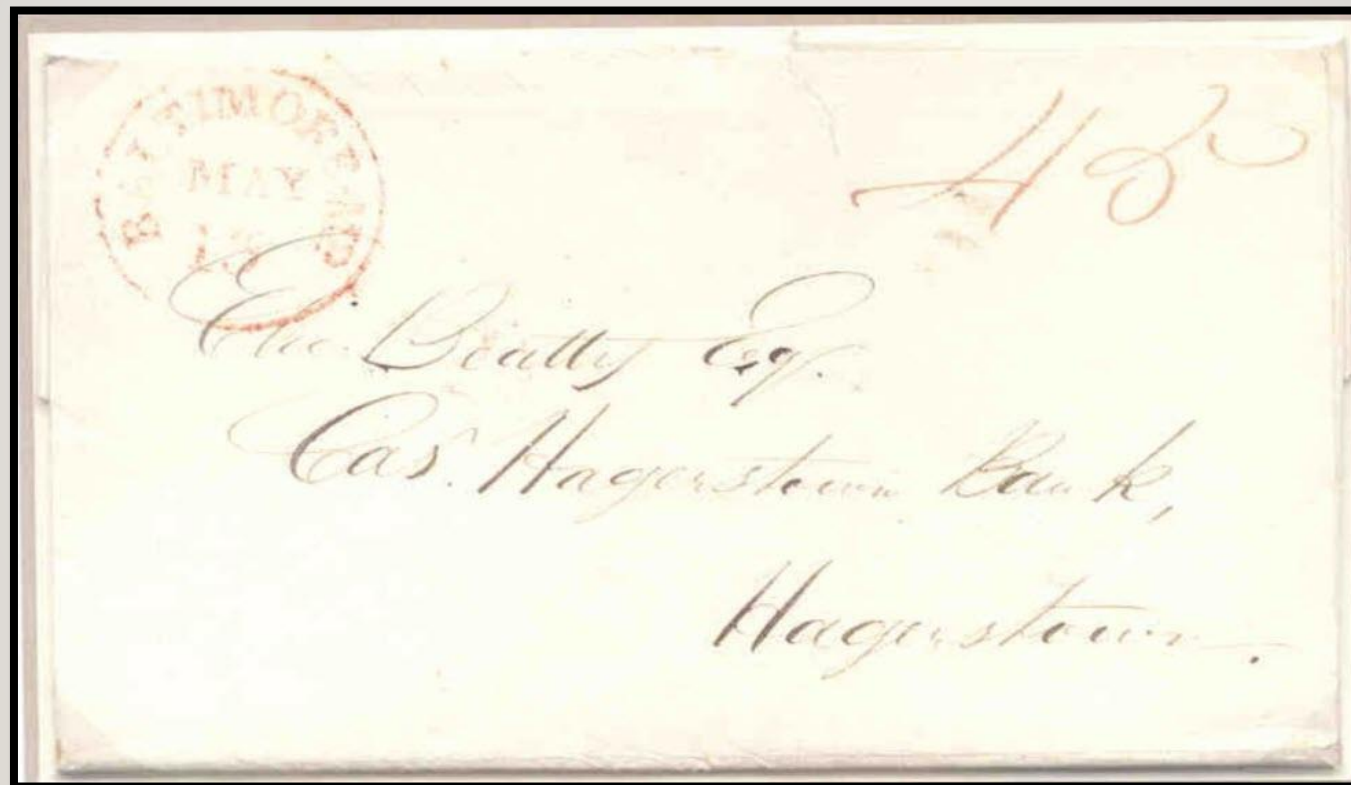 BALTIMORE MD.
MAY
Elie Beatty Esq.
Cas. Hagerstown Bank,
Hagerstown.